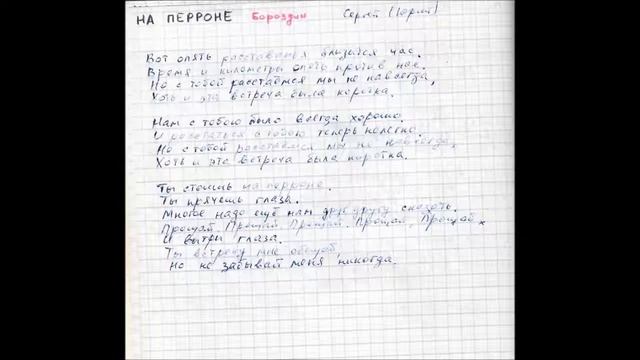 НА ПЕРРОНЕ Бороздин Сергей
Вот опять расставанья близился час.
Время и километры опять против нас.
Но с тобой расстаёмся мы не навсегда,
Хоть и эта встреча была коротка.
Нам с тобою было всегда хорошо.
И расстаться с тобою теперь нелегко.
Но с тобой расстаёмся мы не навсегда,
Хоть и эта встреча была коротка.
Ты стоишь на перроне.
Ты прячешь глаза.
Многое надо ещё нам друг другу сказать.
Прощай, Прощай, Прощай, Прощай, Прощай
И вытри глаза.
Ты встречу мне обещай,
Но не забывай меня никогда.